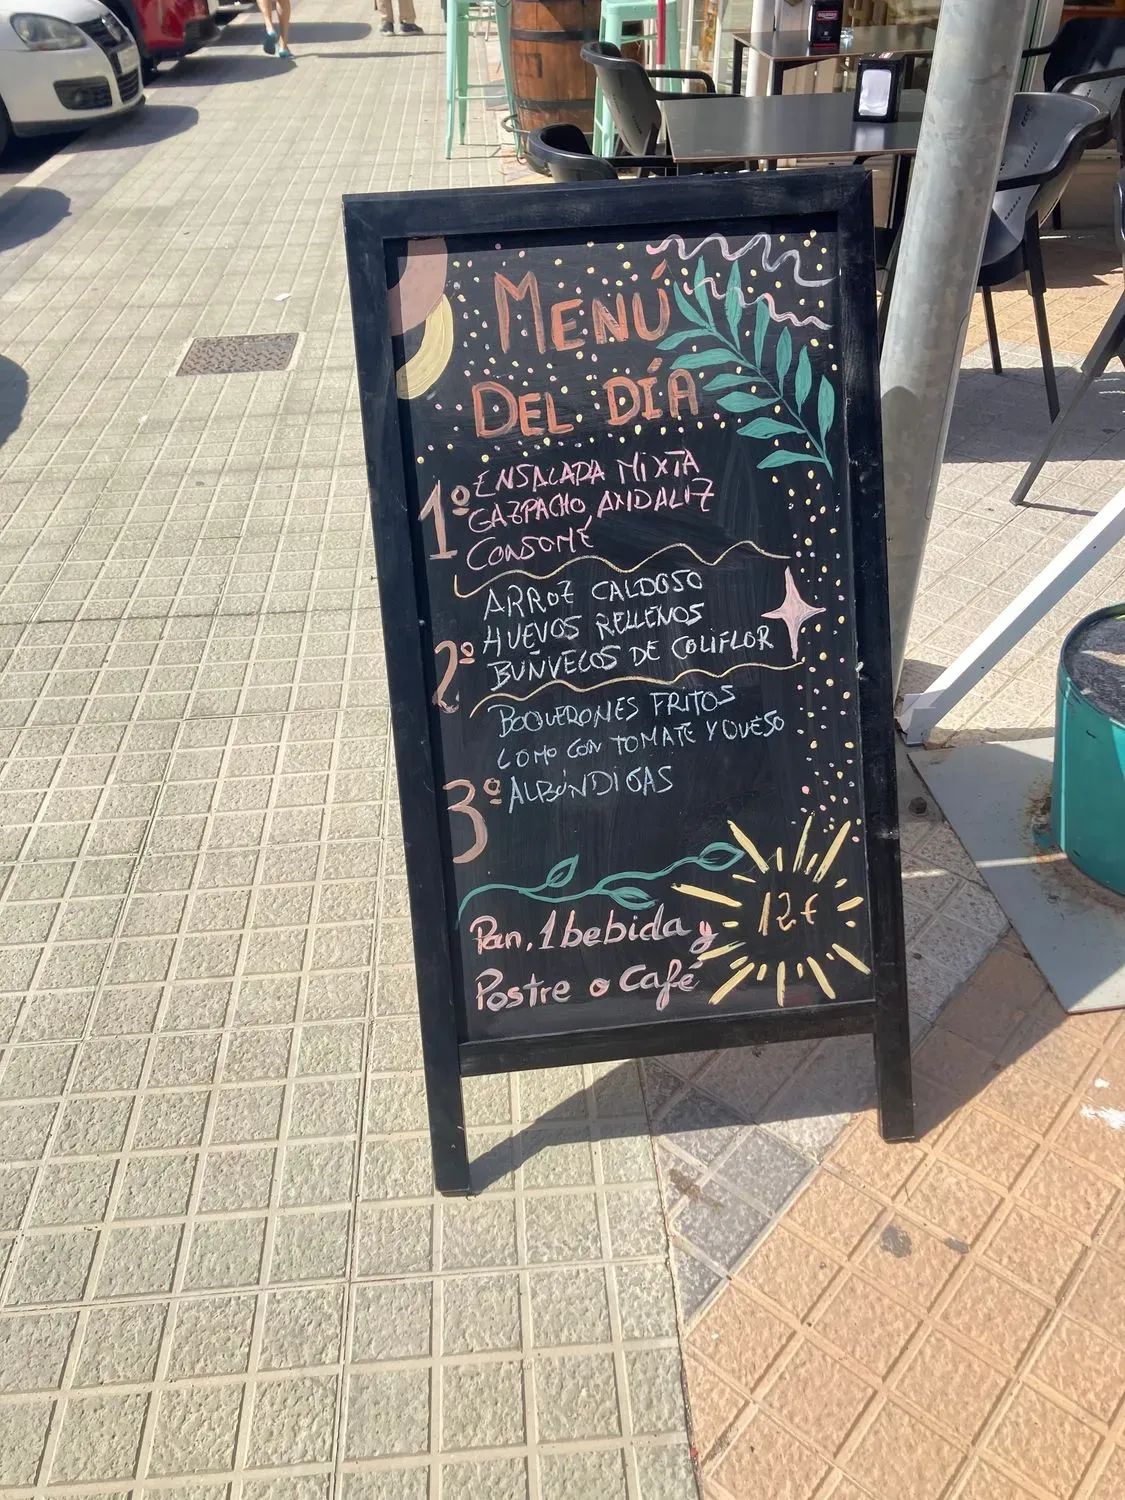 MENÚ
DEL DÍA
1º
ENSALADA MIXTA
GAZPACHO ANDALUZ
CONSOMÉ
2º
ARROZ CALDOSO
HUEVOS RELLENOS
BUÑUELOS DE COLIFLOR
3º
BOQUERONES FRITOS
LOMO CON TOMATE Y QUESO
ALBÓNDIGAS
Pan, 1 bebida y
Postre o Café
12€